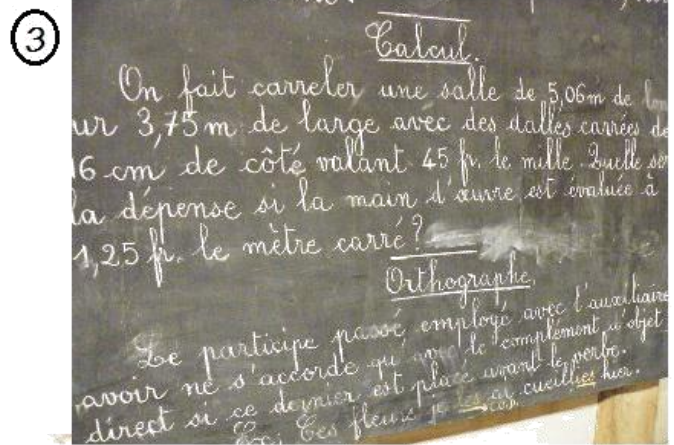 3
Calcul.
On fait carreler une salle de 5,06m de
ur 3,75m de large avec des dalles carrées de
16 cm de côté valant 45 fr. le mille. Quelle se
la dépense si la main d'œuvre est évaluée à
1,25 fr. le mètre carré ?
Orthographe.
Le participe passé employé avec l'auxiliaire
avoir ne s'accorde qu'avec le complément d'objet
direct si ce dernier est placé avant le verbe.
Ex : Ces fleurs je les ai cueillies hier.